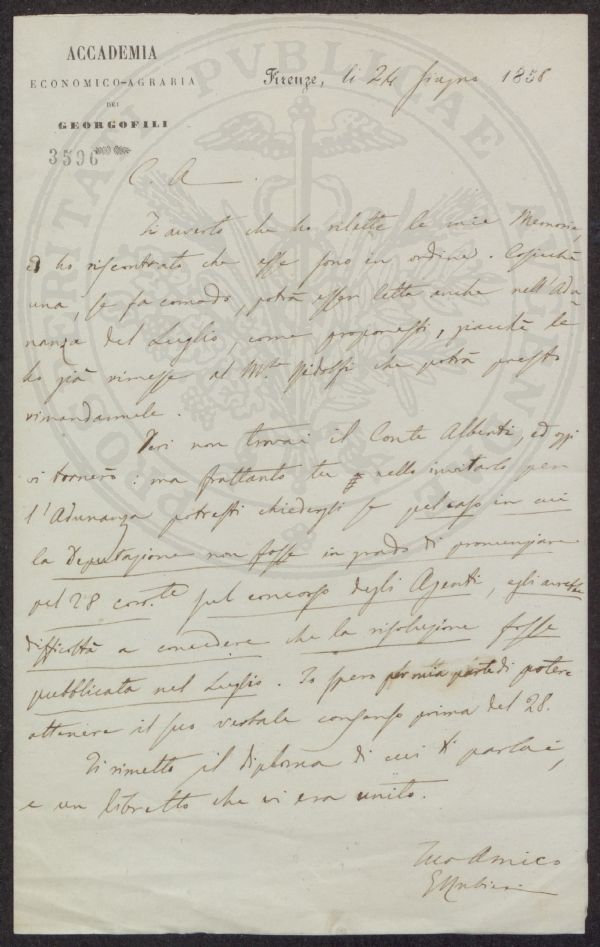 ACCADEMIA
ECONOMICO-AGRARIA
DEI
GEORGOFILI
3596
Firenze, li 24 Giugno 1858
C. A.
Ti avverto che ho rilette le mie Memorie,
ed ho riscontrato che esse sono in ordine. Cosicchè
una, se fa comodo, potrà esser letta anche nell'Adu-
nanza del Luglio, come proponesti, giacchè le
ho già rimesse al M.se Ridolfi che potrà presto
rimandarmele.
Ieri non trovai il Conte Alberti, ed oggi
vi tornerò: ma frattanto tu nello invitarlo per
l'Adunanza potresti chiedergli se pel caso in cui
la Deputazione non fosse in grado di pronunziare
pel 28 corr.te sul concorso degli Agenti, egli avrebbe
difficoltà a concedere che la risoluzione fosse
pubblicata nel Luglio. Io spero per mia parte di potere
ottenere il suo verbale consenso prima del 28.
Ti rimetto il diploma di cui ti parlai,
e un libretto che vi era unito.
Tuo Amico